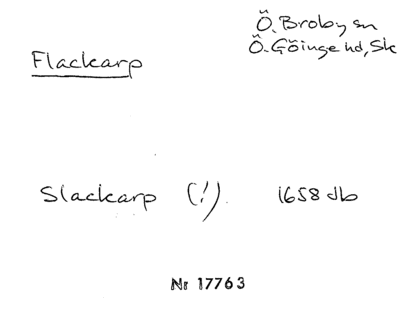 Ö. Broby sn
Ö. Göinge hd, Sk
Flackarp
Slackarp (!). 1658 Jb
Nr 17763